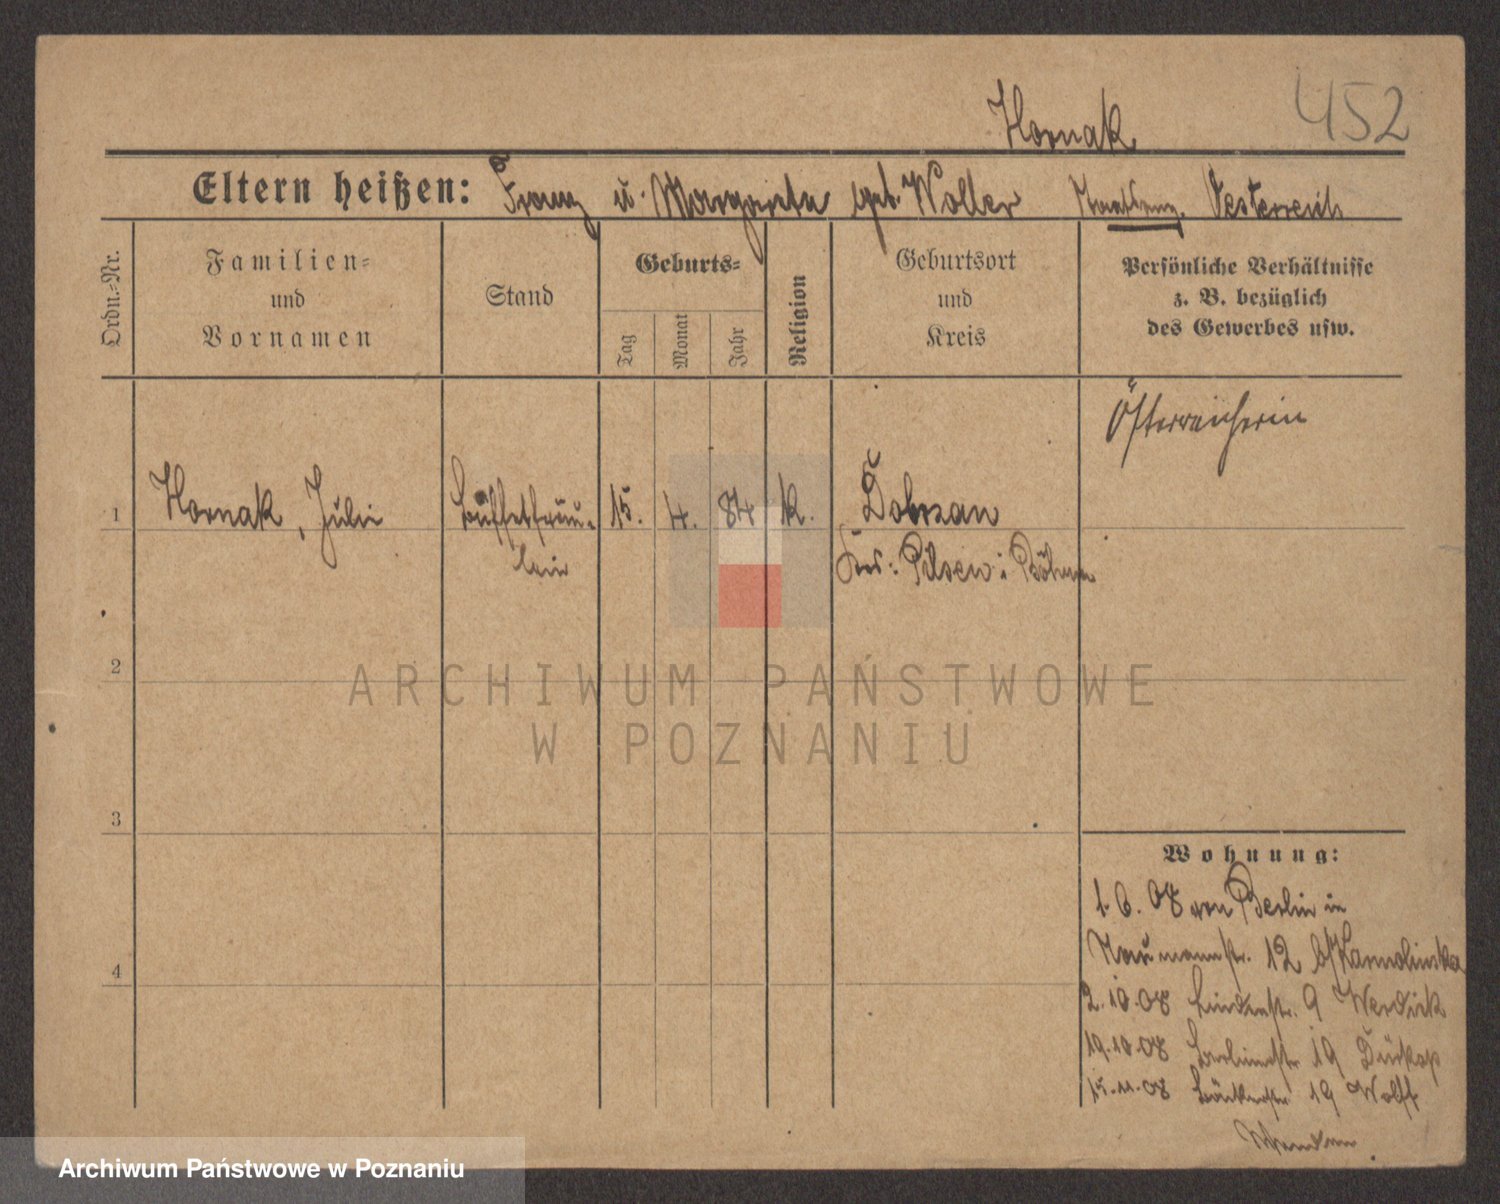 Hornak 452
Eltern heißen: Franz u. Margareta geb. Woller Oesterreich
Ordn.-Nr.
Familien-
und
Vornamen
Stand
Geburts-
Tag
Monat
Jahr
Religion
Geburtsort
und
Kreis
Persönliche Verhältnisse
z. B. bezüglich
des Gewerbes usw.
Österreicherin
1 Hornak, Julie Büffetfräu- 15. 4. 84 k. Dobrzan
lein Krs: Pilsen i Böhmen
2
3
4
ARCHIWUM PAŃSTWOWE
W POZNANIU
Wohnung:
1. 6. 08 von Berlin in
Naumannstr. 12 b/
2.10.08 Lindenstr. 9 Werdick
19.10.08 Berlinerstr 19
15.11.08 Bäckerstr 19 Wolff
Archiwum Państwowe w Poznaniu